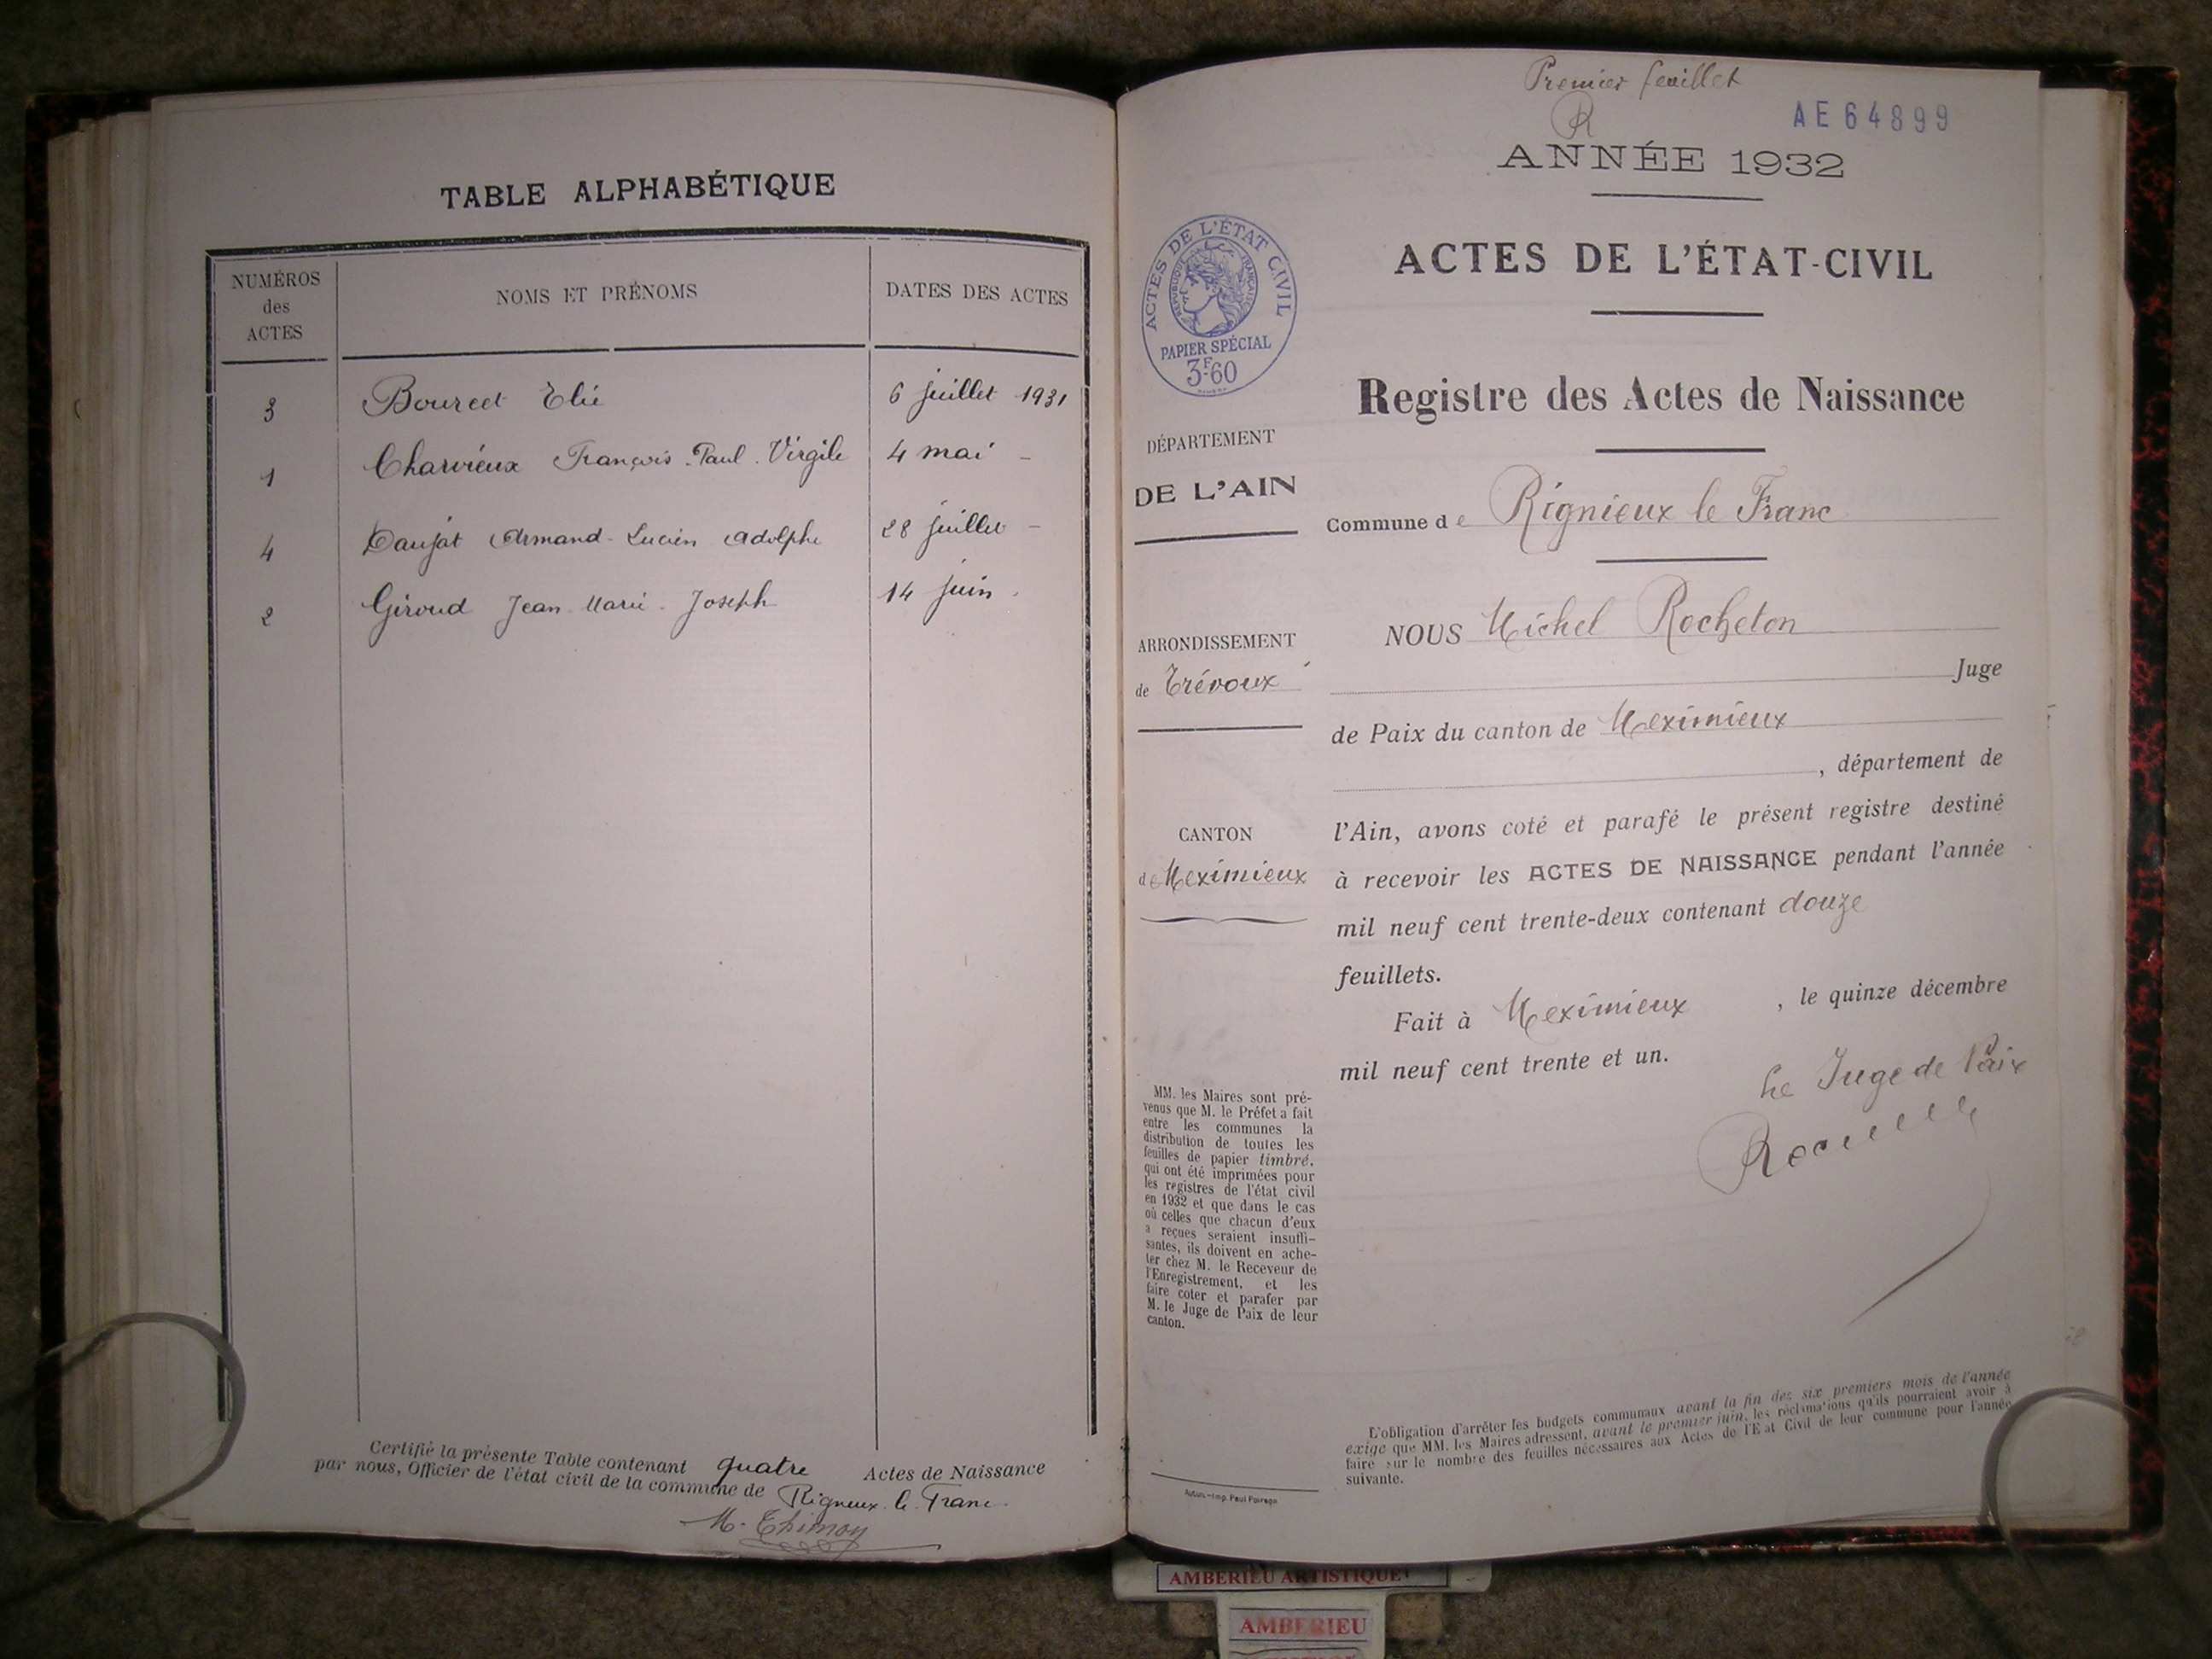 TABLE ALPHABÉTIQUE
NUMÉROS
des
ACTES
NOMS ET PRÉNOMS
DATES DES ACTES
3 Bourcet Elie 6 juillet 1931
1 Charvieux François. Paul. Virgile 4 mai -
4 Daujat Armand-Lucien Adolphe 28 juillet -
2 Giroud Jean Marie. Joseph 14 juin.
Certifié la présente Table contenant quatre Actes de Naissance
par nous, Officier de l'état civil de la commune de Rigneux. le. Franc.
M. Thimon
Premier feuillet
R
AE64899
ANNÉE 1932
ACTES DE L'ÉTAT-CIVIL
Registre des Actes de Naissance
Commune de Rignieux le Franc
NOUS Michel Rocheton
Juge
de Paix du canton de Meximieux
, département de
l'Ain, avons coté et parafé le présent registre destiné
à recevoir les ACTES DE NAISSANCE pendant l'année
mil neuf cent trente-deux contenant douze
feuillets.
Fait à Meximieux , le quinze décembre
mil neuf cent trente et un.
Le Juge de Paix
ACTES DE L'ÉTAT CIVIL
RÉPUBLIQUE FRANÇAISE
PAPIER SPÉCIAL
3F60
DÉPARTEMENT
DE L'AIN
ARRONDISSEMENT
de Trévoux
CANTON
de Meximieux
MM. les Maires sont pré-
venus que M. le Préfet a fait
entre les communes la
distribution de toutes les
feuilles de papier timbré.
qui ont été imprimées pour
les registres de l'état civil
en 1932 et que dans le cas
où celles que chacun d'eux
a reçues seraient insuffi-
santes, ils doivent en ache-
ter chez M. le Receveur de
l'Enregistrement, et les
faire coter et parafer par
M. le Juge de Paix de leur
canton.
L'obligation d'arrêter les budgets communaux avant la fin des six premiers mois de l'année
exige que MM. les Maires adressent, avant le premier juin, les réclamations qu'ils pourraient avoir à
faire sur le nombre des feuilles nécessaires aux Actes de l'Etat Civil de leur commune pour l'année
suivante.
Imp. Paul
AMBERIEU ARTISTIQUE
AMBERIEU